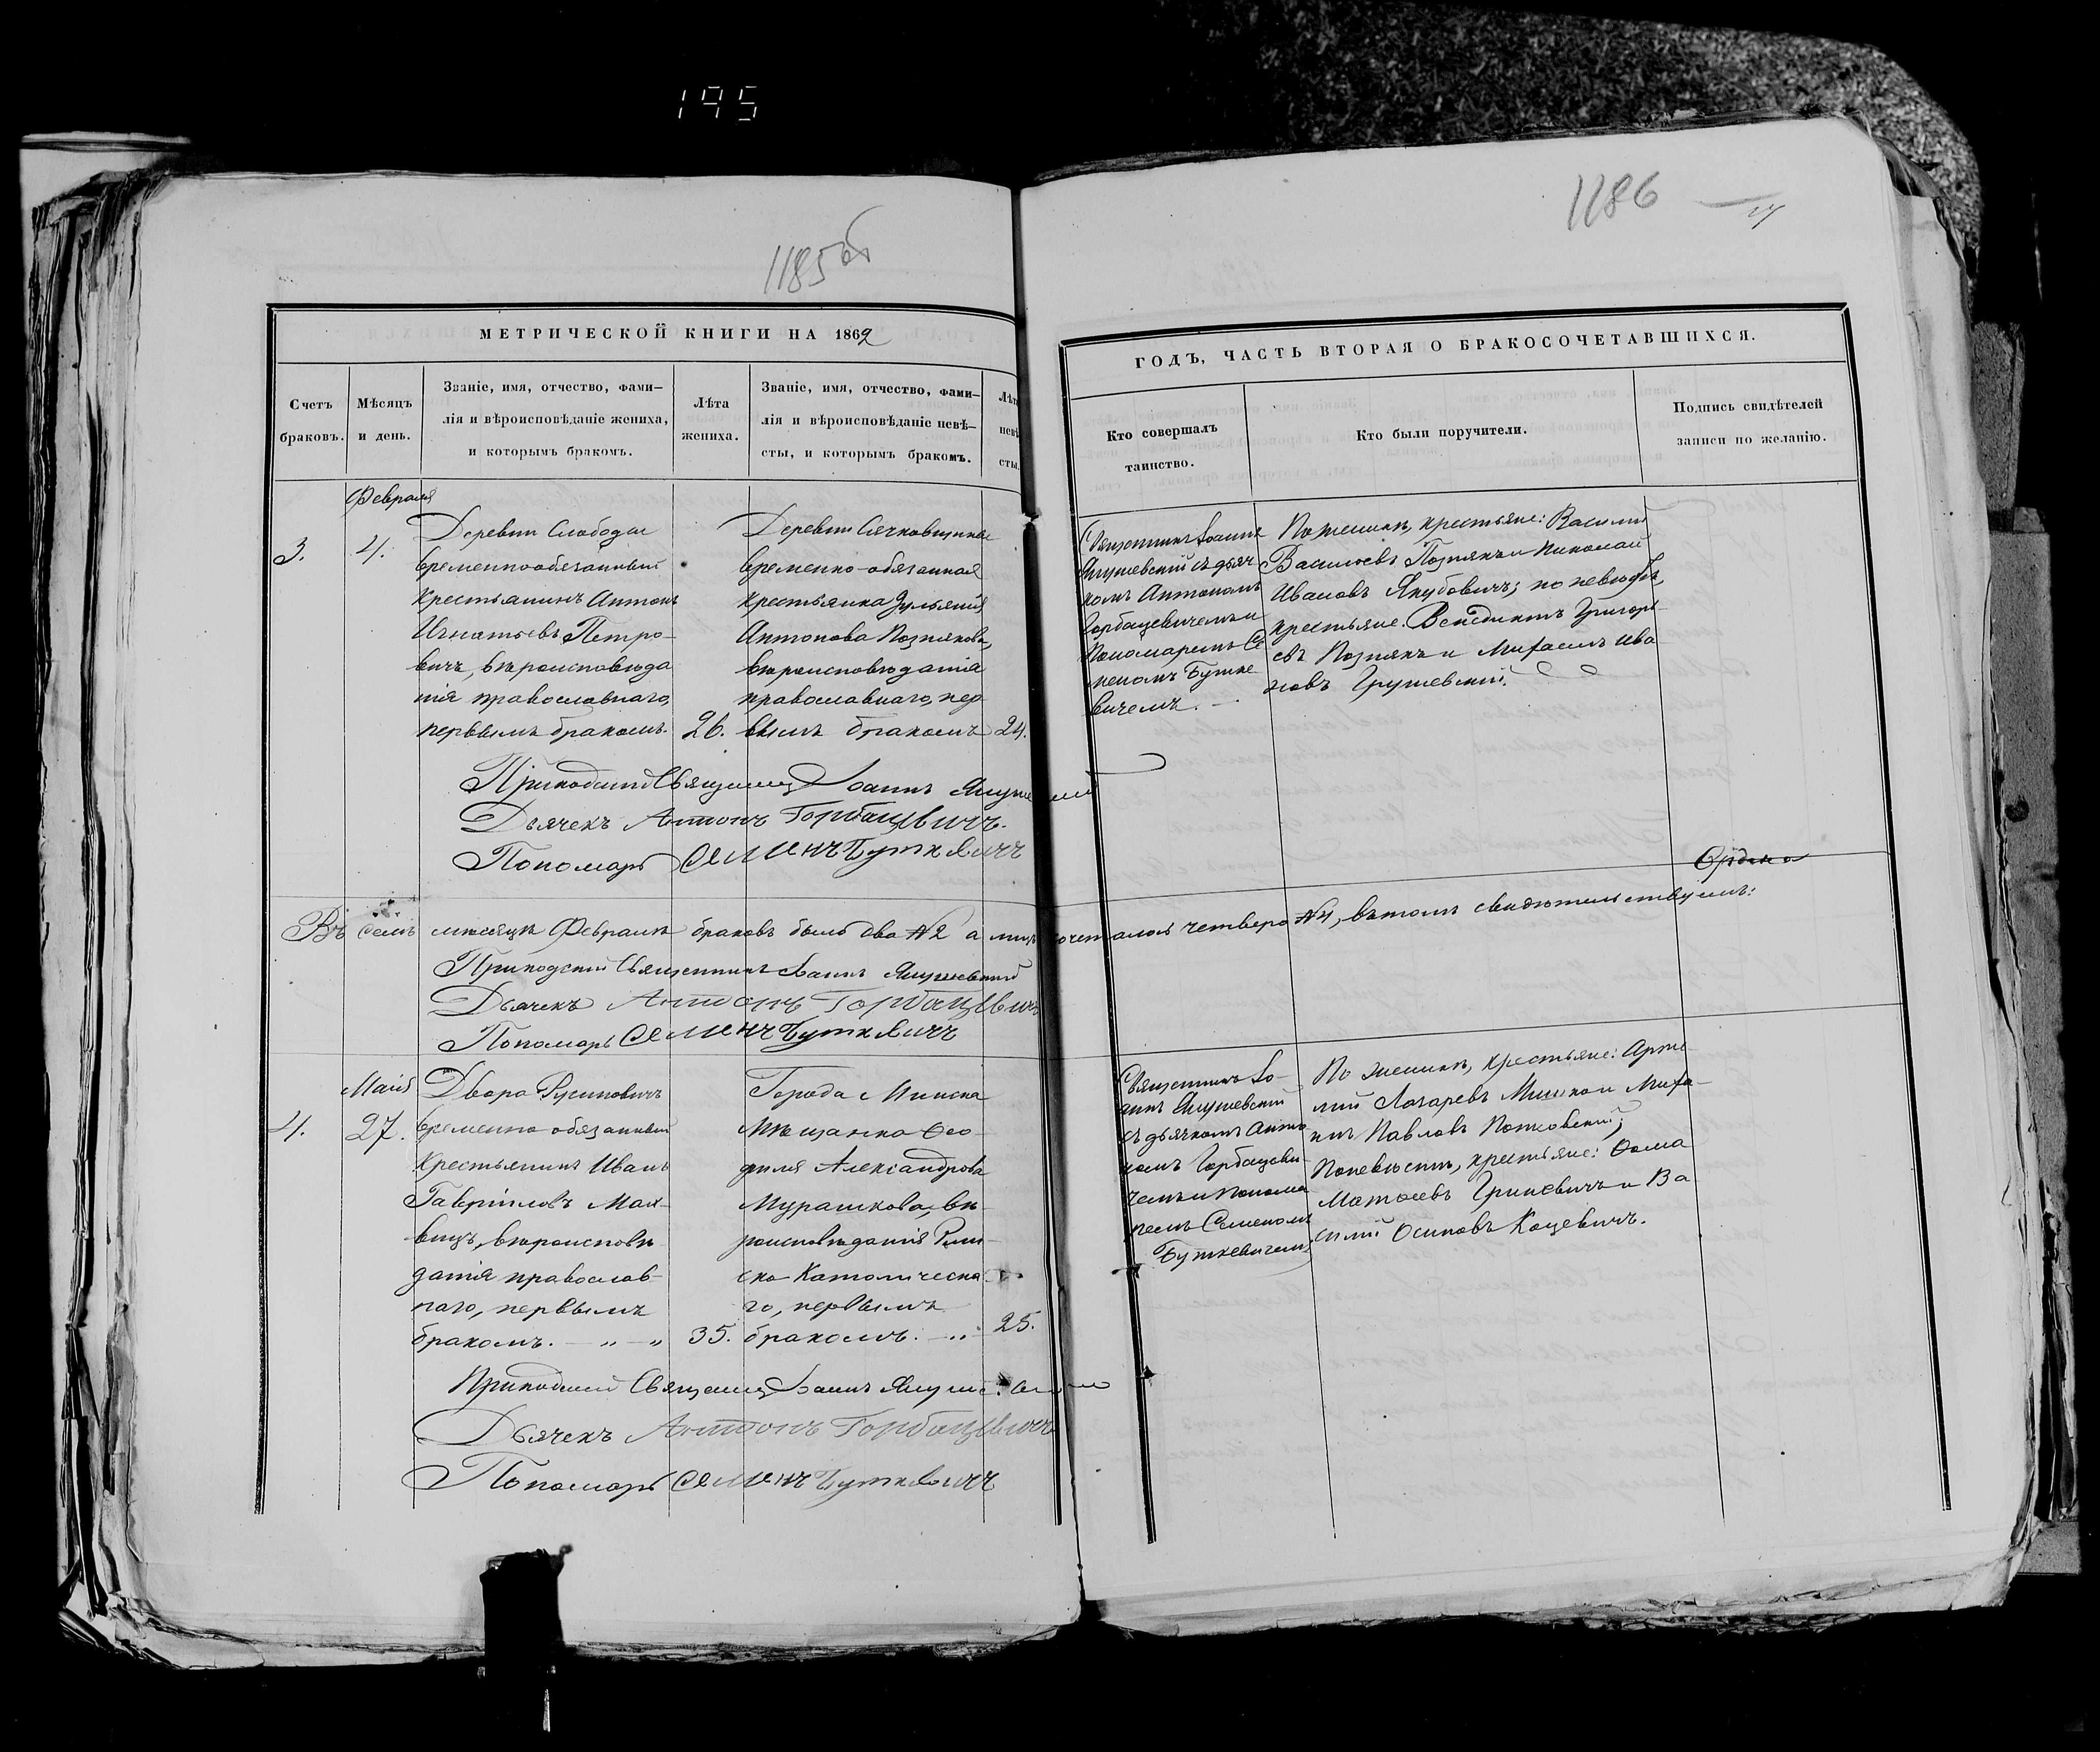 195
1185об
1186
МЕТРИЧЕСКОЙ КНИГИ НА 1862
ГОДЪ, ЧАСТЬ ВТОРАЯ О БРАКОСОЧЕТАВШИХСЯ.
Счетъ
браковъ.
Мѣсяцъ
и день.
Званіе, имя, отчество, фами-
лія и вѣроисповѣданіе жениха,
и которымъ бракомъ.
Лѣта
жениха.
Званіе, имя, отчество, фами-
лія и вѣроисповѣданіе невѣ-
сты, и которымъ бракомъ.
Лѣта
невѣ
сты.
Кто совершалъ
таинство.
Кто были поручители.
Подпись свидѣтелей
записи по желанію.
Февраля
3.
4.
Деревни Слободы
временнообязанный
крестьянинъ Антонъ
Игнатьевъ Петро-
вичъ, вѣроисповѣда
нія православнаго,
первымъ бракомъ.
26.
Деревни
временно-обязанная
крестьянка
Антонова Познякова,
вѣроисповѣданія
православнаго, пер
вымъ бракомъ
24.
Священникъ Іоаннъ
Янушевскій съ дьяч
комъ Антономъ
Горбацевичемъ и
Пономаремъ Се
меномъ Бутке
вичемъ.
По женихѣ, крестьяне: Василій
Васильевъ Познякъ и Николай
Ивановъ Якубовичъ; по невѣстѣ,
крестьяне: Венедиктъ Григорь
евъ Познякъ и Михаилъ Ива
новъ Грушевскій.
Приходскій Священникъ Іоаннъ Янушевскій
Дьячекъ Антонъ Горбацевичъ.
Пономарь Семенъ Буткевичъ
Въ семъ мѣсяцѣ Февралѣ браковъ было два №2 а лицъ сочеталось четверо №4, въ томъ свидѣтельствуемъ:
Приходскій Священникъ Іоаннъ Янушевскій
Дьячекъ Антонъ Горбацевичъ
Пономарь Семенъ Буткевичъ
Маія
4.
27.
Двора Русиновичъ
временно-обязанный
крестьянинъ Иванъ
Гавріиловъ
вѣроисповѣ
данія православ-
наго, первымъ
бракомъ. — „ — „
35.
Города Минска
Мѣщанка Ѳео-
филя Александрова
Мурашкова, вѣ-
роисповѣданія Рим-
ско-Католическа
го, первымъ
бракомъ. — „
25.
Священникъ Іо-
аннъ Янушевскій
съ дьячкомъ Анто
номъ Горбацеви-
чемъ и Понома
ремъ Семеномъ
Буткевичемъ
По женихѣ, крестьяне:
Лазаревъ и Миха-
илъ Павловъ
По невѣстѣ, крестьяне: Ѳома
Матѳеевъ Гриневичъ и Ва
силій Осиповъ Коцевичъ.
Приходскій Священникъ Іоаннъ Янушевскій
Дьячекъ Антонъ Горбацевичъ
Пономарь Семенъ Буткевичъ